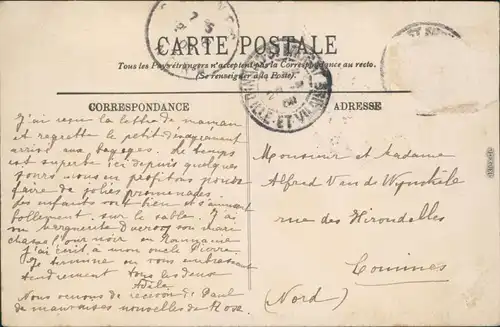 CARTE POSTALE
Tous les Pays étrangers n'acceptent pas la Correspondance au recto.
(Se renseigner à la Poste).
CORRESPONDANCE
J'ai reçu la lettre de maman
et regrette le petit désagrément
arrivé aux bagages. Le temps
est superbe ici depuis quelques
jours nous en profitons pour
faire de jolies promenades
les enfants vont bien et s'amusent
follement sur le sable. J'ai
vu Marguerite
pour noir en
J'ai écrit à mon oncle Pierre
Je termine en vous embrassant
tendrement tous les deux
Adèle
Nous venons de recevoir de Paul
de mauvaises nouvelles de Rosa
ADRESSE
Monsieur et Madame
Alfred Van de
rue des Hirondelles
Comines
(Nord)
ILLE-ET-VILAINE